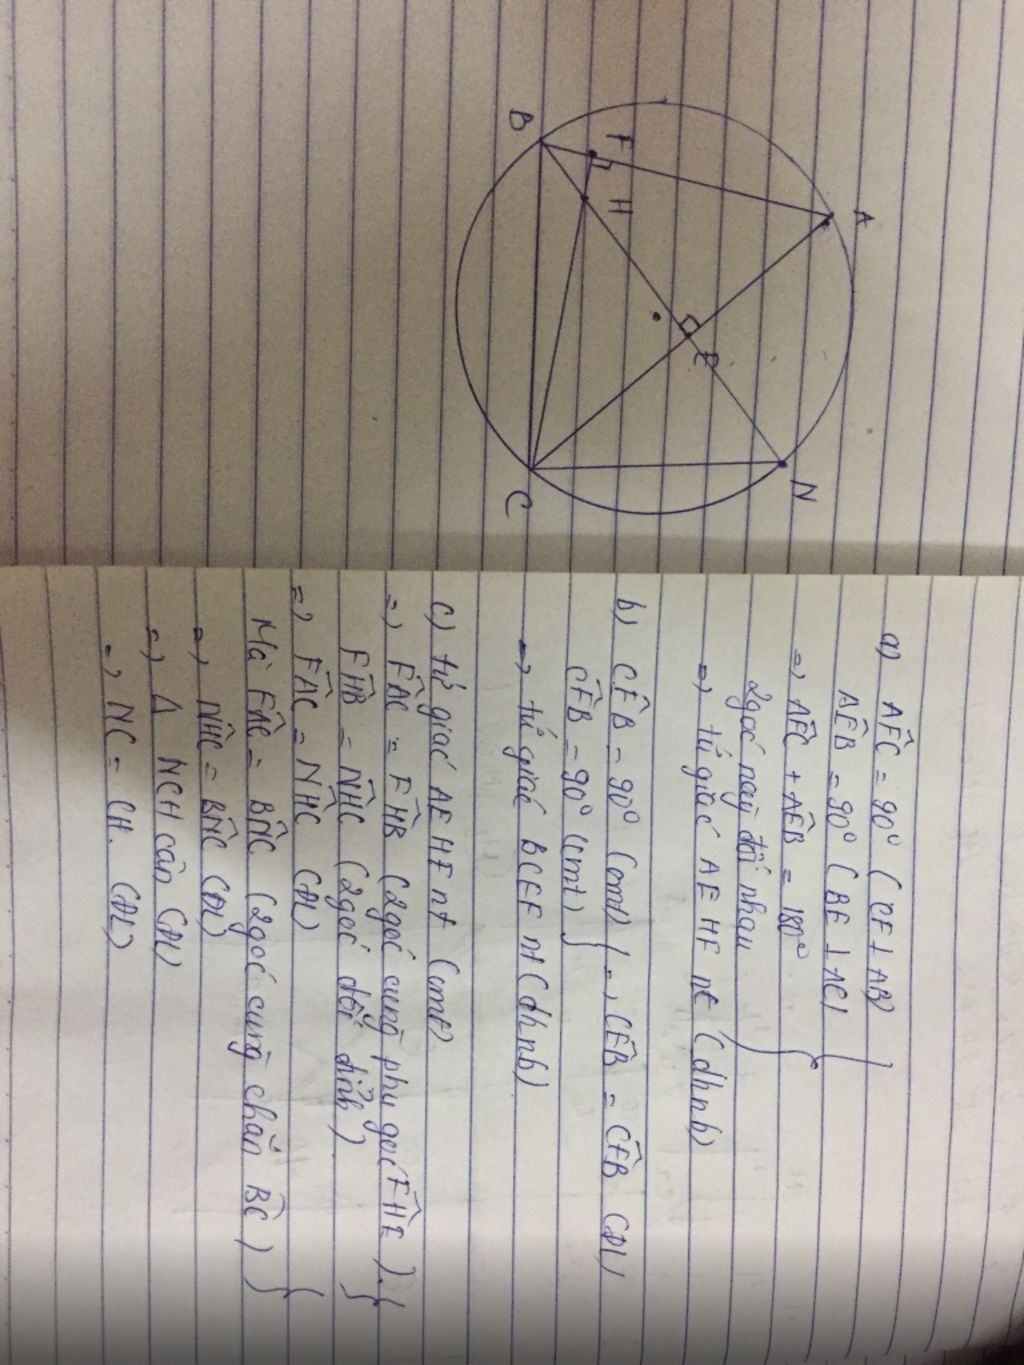 B
F
H
A
E
N
C
a) AF̂C = 90° (CF ⊥ AB)
AÊB = 90° (BE ⊥ AC)
=> AF̂C + AÊB = 180°
2 góc này đối nhau
=> tứ giác AEHF nt (dhnb)
b) CÊB = 90° (cmt) => CÊB = CF̂B (ĐL)
CF̂B = 90° (cmt)
=> tứ giác BCEF nt (dhnb)
c) tứ giác AEHF nt (cmt)
=> FÂC = FĤB (2 góc cùng phụ góc FĤE).
FĤB = NĤC (2 góc đối đỉnh)
=> FÂC = NĤC (ĐL)
Mà FÂC = BN̂C (2 góc cùng chắn BC)
=> NĤC = BN̂C (ĐL)
=> Δ NCH cân (ĐL)
=> NC = CH. (ĐL)